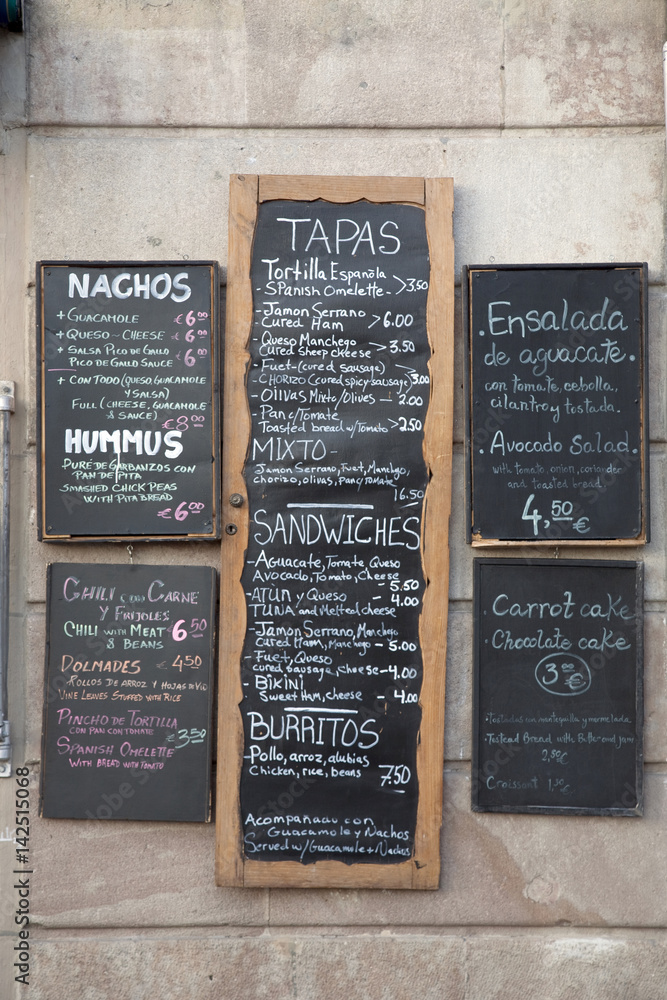 NACHOS
+ GUACAMOLE €6
+ QUESO - CHEESE €6
+ SALSA PICO DE GALLO €6
PICO DE GALLO SAUCE
+ CON TODO (QUESO, GUACAMOLE
Y SALSA)
FULL (CHEESE, GUACAMOLE
& SAUCE)
€8.00
HUMMUS
PURÉ DE GARBANZOS CON
PAN DE PITA
SMASHED CHICK PEAS
WITH PITA BREAD €6
CHILI CON CARNE
Y FRIJOLES
CHILI WITH MEAT 6.50
& BEANS
DOLMADES €4.50
ROLLOS DE ARROZ Y HOJAS DE VID
VINE LEAVES STUFFED WITH RICE
PINCHO DE TORTILLA
CON PAN CON TOMATE
SPANISH OMELETTE €3.50
WITH BREAD WITH TOMATO
TAPAS
Tortilla Española
- Spanish Omelette - >3.50
- Jamon Serrano
Cured Ham >6.00
- Queso Manchego
Cured sheep cheese >3.50
- Fuet - (cured sausage)
- CHORIZO (cured spicy sausage) 3.00
- Olivas Mixto/Olives - 2.00
- Pan c/Tomate
Toasted bread w/Tomato >2.50
MIXTO -
Jamon Serrano, Fuet, Manchego,
chorizo, olivas, pan c/tomate
16.50
SANDWICHES
- Aguacate, Tomate, Queso
Avocado, Tomato, Cheese - 5.50
- ATUN y QUESO - 4.00
TUNA and Melted cheese
- Jamon Serrano, Manchego
Cured Ham, Manchego - 5.00
- Fuet, Queso
cured sausage, cheese - 4.00
- BIKINI
Sweet Ham, cheese - 4.00
BURRITOS
- Pollo, arroz, alubias
Chicken, rice, beans 7.50
Acompañado con
Guacamole y Nachos
Served w/Guacamole + Nachos
. Ensalada
de aguacate.
con tomate, cebolla,
cilantro y tostada.
. Avocado Salad.
with tomato, onion, coriander
and toasted bread.
4,50 €
Carrot cake
Chocolate cake
3,00 €
Tostadas con mantequilla y mermelada
Tostead Bread with Butter and jam
2,80€
Croissant 1,50€
142515068
Adobe Stock